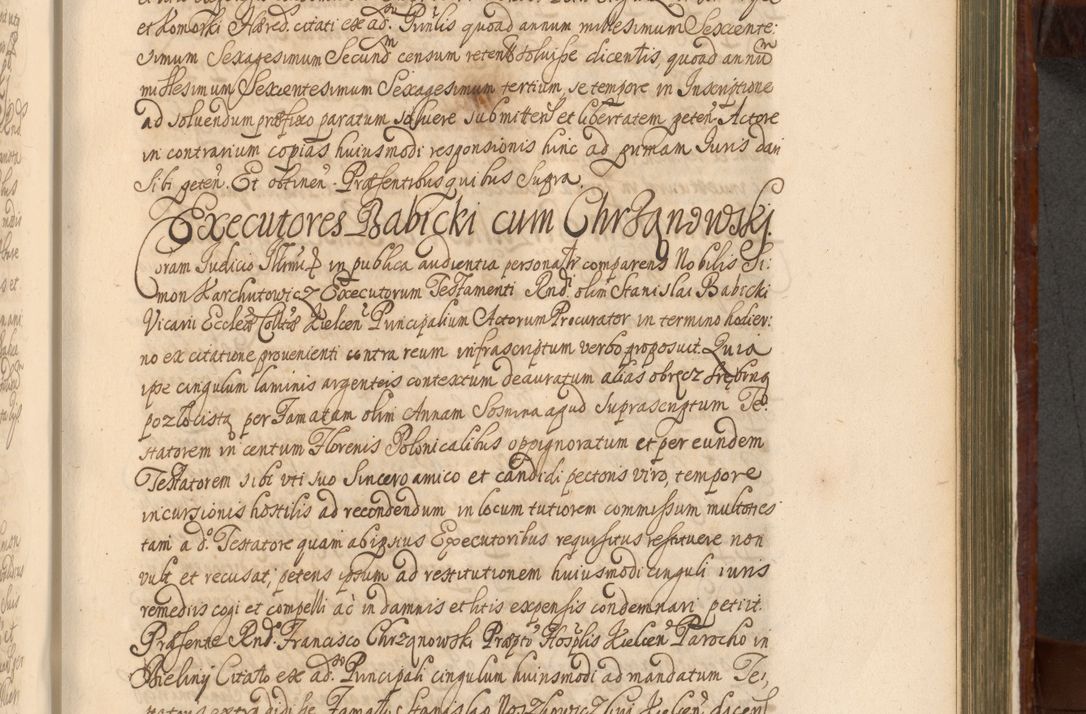 et Komorki Hæred. citati ex ad. Punlis quoad annum millesimum Sexcente:
simum Sexagesimum Secund censum retent soluisse dicentis, quoad annũ
millesimum Sexcentesimum Sexagesimum tertium, se tempore in Inscriptione
ad soluendum præfixo paratum soluere submitten et libertatem peten. Actore
in contrarium copias huiusmodi responsionis hinc ad primam Iuris dari
sibi peten. Et obtinen. Præsentibus quibus supra.
Executores Babicki cum Chrząnowski.
Coram Iudicio in publica audientia personalr comparens Nobilis Si:
mon Karchutowicz Executorum Testamenti Rnd. olim Stanislai Babicki
Vicarii Eccleæ Colltæ Kielcen Principalium Actorum Procurator in termino hodier:
no ex citatione provenienti contra reum infrascriptum verbo proposuit. Quia
ipse cingulum laminis argenteis contextum deauratum alias obręcz srębrną
pozłocistą per Famatam olim Annam Sosnina apud suprascriptum Te:
statorem in centum Florenis Polonicalibus oppignoratum et per eundem
Testatorem sibi uti suo sincero amico et candidi pectoris viro, tempore
incursionis hostilis ad recondendum in locum tutiorem commissum multoties
tam a d. Testatore quam ab ipsius Executoribus requisitus restituere non
vult et recusat, petens ipsum ad restitutionem huiusmodi cinguli iuris
remediis cogi et compelli ac in damnis et litis expensis condemnari petiit.
Præsente Rnd. Francisco Chrząnowski Præpto Hosplis Kielcen Parocho in
Bieliny Citato ex ad. Principali cingulum huiusmodi ad mandatum Tes,
tatoris extradidisse Famatu Stanislao